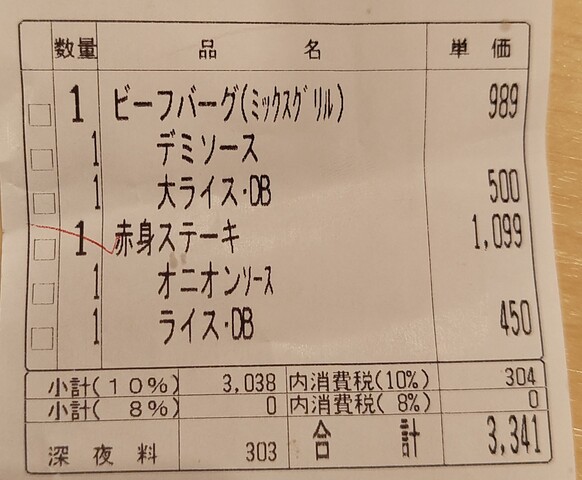 数量 品名 単価
1 ビーフバーグ(ミックスグリル) 989
1 デミソース
1 大ライス・DB 500
1 赤身ステーキ 1,099
1 オニオンソース
1 ライス・DB 450
小計(10%) 3,038 内消費税(10%) 304
小計( 8%) 0 内消費税( 8%) 0
深夜料 303 合計 3,341